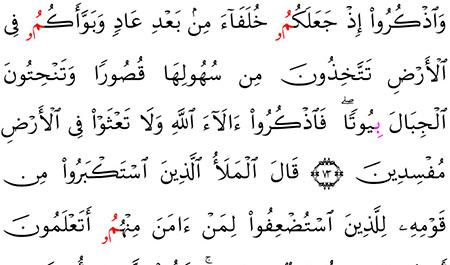 وَٱذْكُرُوا۟ إِذْ جَعَلَكُمُۥ خُلَفَآءَ مِنۢ بَعْدِ عَادٍ وَبَوَّأَكُمُۥ فِى
ٱلْأَرْضِ تَتَّخِذُونَ مِن سُهُولِهَا قُصُورًا وَتَنْحِتُونَ
ٱلْجِبَالَ بِيُوتًاۖ فَٱذْكُرُوا۟ ءَالَآءَ ٱللَّهِ وَلَا تَعْثَوْا۟ فِى ٱلْأَرْضِ
مُفْسِدِينَ ﴿٧٣﴾ قَالَ ٱلْمَلَأُ ٱلَّذِينَ ٱسْتَكْبَرُوا۟ مِن
قَوْمِهِۦ لِلَّذِينَ ٱسْتُضْعِفُوا۟ لِمَنْ ءَامَنَ مِنْهُمُۥ أَتَعْلَمُونَ